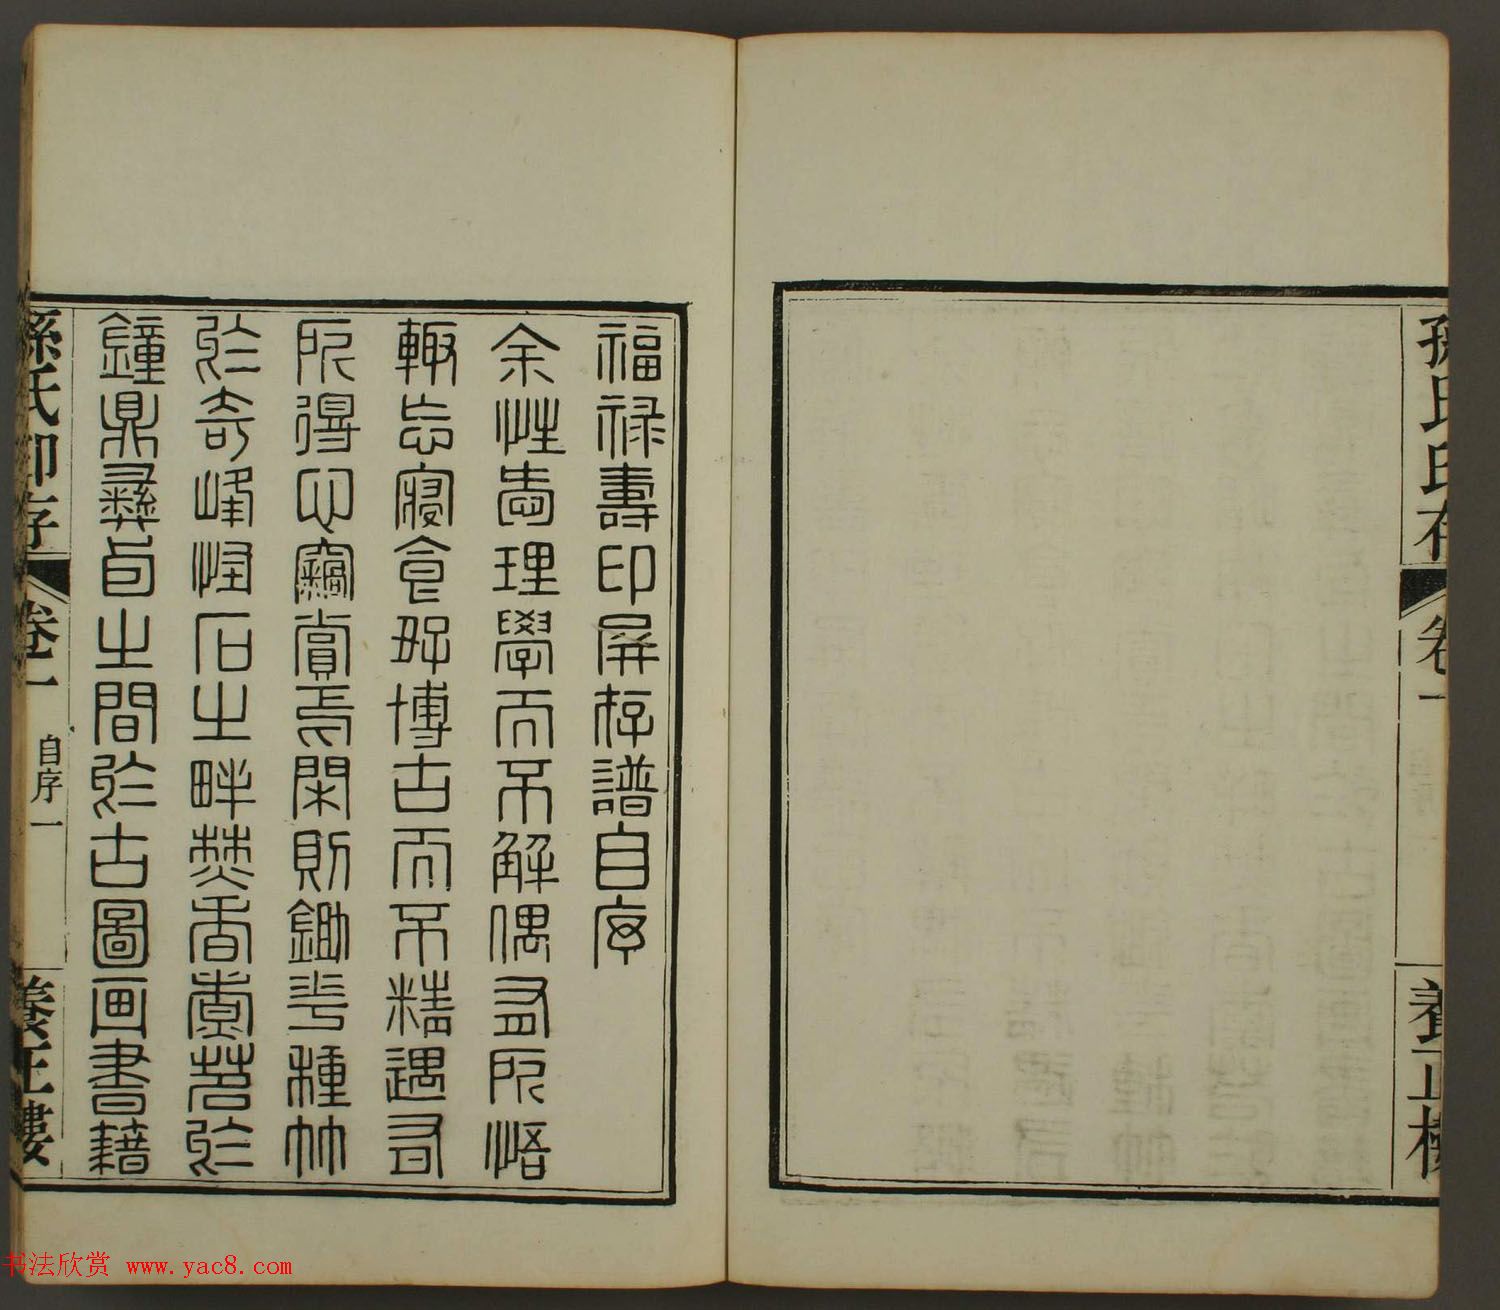 孫氏印存 卷一 養正樓
福祿壽印屏存譜自序
余性嗜理學而不解偶有所悟
輒忘寢食好博古而不精遇有
所得心竊賞焉閑則鋤花種竹
於奇峰怪石之畔焚香煮茗於
鐘鼎彝卣之間於古圖畫書籍
孫氏印存 卷一 自序一 養正樓
书法欣赏 www.yac8.com